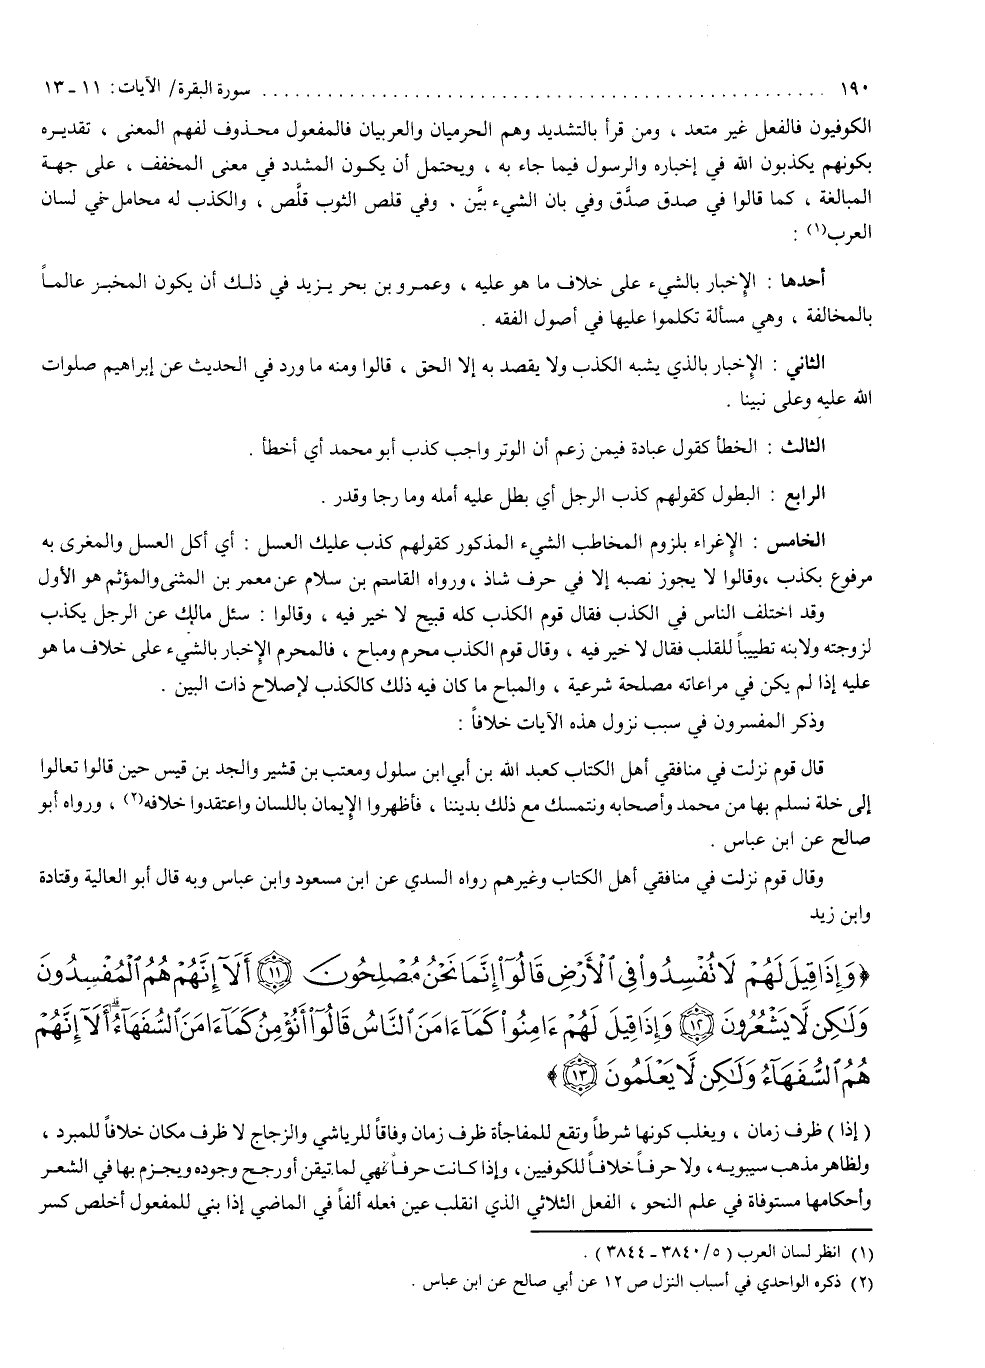 ١٩٠ ........................................................ سورة البقرة/ الآيات: ١١ ـ ١٣
الكوفيون فالفعل غير متعد ، ومن قرأ بالتشديد وهم الحرميان والعربيان فالمفعول محذوف لفهم المعنى ، تقديره
بكونهم يكذبون الله في إخباره والرسول فيما جاء به ، ويحتمل أن يكون المشدد في معنى المخفف ، على جهة
المبالغة ، كما قالوا في صدق صدَّق وفي بان الشيء بيَّن . وفي قلص الثوب قلَّص ، والكذب له محامل في لسان
العرب(١) :
أحدها : الإخبار بالشيء على خلاف ما هو عليه ، وعمرو بن بحر يزيد في ذلك أن يكون المخبر عالماً
بالمخالفة ، وهي مسألة تكلموا عليها في أصول الفقه .
الثاني : الإخبار بالذي يشبه الكذب ولا يقصد به إلا الحق ، قالوا ومنه ما ورد في الحديث عن إبراهيم صلوات
الله عليه وعلى نبينا .
الثالث : الخطأ كقول عبادة فيمن زعم أن الوتر واجب كذب أبو محمد أي أخطأ .
الرابع : البطول كقولهم كذب الرجل أي بطل عليه أمله وما رجا وقدر .
الخامس : الإغراء بلزوم المخاطب الشيء المذكور كقولهم كذب عليك العسل : أي أكل العسل والمغرى به
مرفوع بكذب ،وقالوا لا يجوز نصبه إلا في حرف شاذ ،ورواه القاسم بن سلام عن معمر بن المثنى والمؤثم هو الأول
وقد اختلف الناس في الكذب فقال قوم الكذب كله قبيح لا خير فيه ، وقالوا : سئل مالك عن الرجل يكذب
لزوجته ولابنه تطييباً للقلب فقال لا خير فيه ، وقال قوم الكذب محرم ومباح ، فالمحرم الإخبار بالشيء على خلاف ما هو
عليه إذا لم يكن في مراعاته مصلحة شرعية ، والمباح ما كان فيه ذلك كالكذب لإصلاح ذات البين .
وذكر المفسرون في سبب نزول هذه الآيات خلافاً :
قال قوم نزلت في منافقي أهل الكتاب كعبد الله بن أبي ابن سلول ومعتب بن قشير والجد بن قيس حين قالوا تعالوا
إلى خلة نسلم بها من محمد وأصحابه ونتمسك مع ذلك بديننا ، فأظهروا الإيمان باللسان واعتقدوا خلافه(٢) ، ورواه أبو
صالح عن ابن عباس .
وقال قوم نزلت في منافقي أهل الكتاب وغيرهم رواه السدي عن ابن مسعود وابن عباس وبه قال أبو العالية وقتادة
وابن زيد
﴿ وَإِذَا قِيلَ لَهُمْ لَا تُفْسِدُوا۟ فِى ٱلْأَرْضِ قَالُوٓا۟ إِنَّمَا نَحْنُ مُصْلِحُونَ ١١ أَلَآ إِنَّهُمْ هُمُ ٱلْمُفْسِدُونَ
وَلَـٰكِن لَّا يَشْعُرُونَ ١٢ وَإِذَا قِيلَ لَهُمْ ءَامِنُوا۟ كَمَآ ءَامَنَ ٱلنَّاسُ قَالُوٓا۟ أَنُؤْمِنُ كَمَآ ءَامَنَ ٱلسُّفَهَآءُ ۗ أَلَآ إِنَّهُمْ
هُمُ ٱلسُّفَهَآءُ وَلَـٰكِن لَّا يَعْلَمُونَ ١٣ ﴾
( إذا ) ظرف زمان ، ويغلب كونها شرطاً وتقع للمفاجأة ظرف زمان وفاقاً للرياشي والزجاج لا ظرف مكان خلافاً للمبرد ،
ولظاهر مذهب سيبويه ، ولا حرفاً خلافاً للكوفيين ، وإذا كانت حرفاً فهي لما تيقن أو رجح وجوده ويجزم بها في الشعر
وأحكامها مستوفاة في علم النحو ، الفعل الثلاثي الذي انقلب عين فعله ألفاً في الماضي إذا بني للمفعول أخلص كسر
(١) انظر لسان العرب ( ٥/ ٣٨٤٠ ـ ٣٨٤٤ ) .
(٢) ذكره الواحدي في أسباب النزل ص ١٢ عن أبي صالح عن ابن عباس .